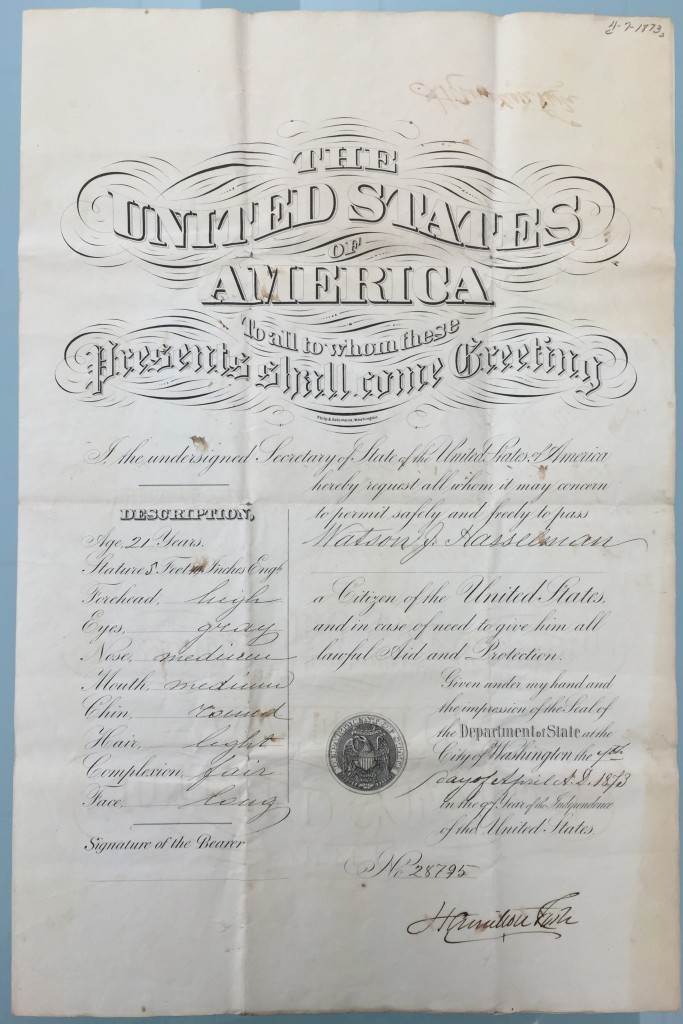 4-7-1873
THE
UNITED STATES
OF
AMERICA
To all to whom these
Presents shall come Greeting
Philp & Solomons, Washington
I, the undersigned Secretary of State of the United States of America
hereby request all whom it may concern
to permit safely and freely to pass
Watson J. Hasselman
a Citizen of the United States,
and in case of need to give him all
lawful Aid and Protection.
DESCRIPTION,
Age, 21 Years.
Stature, 5 Feet Inches Engh
Forehead, high
Eyes, gray
Nose, medium
Mouth, medium
Chin, round
Hair, light
Complexion, fair
Face, long
Signature of the Bearer
Given under my hand and
the impression of the Seal of
the Department of State at the
City of Washington the 7th
day of April A.D. 1873
in the 97 Year of the Independence
of the United States
No 28795
Hamilton Fish